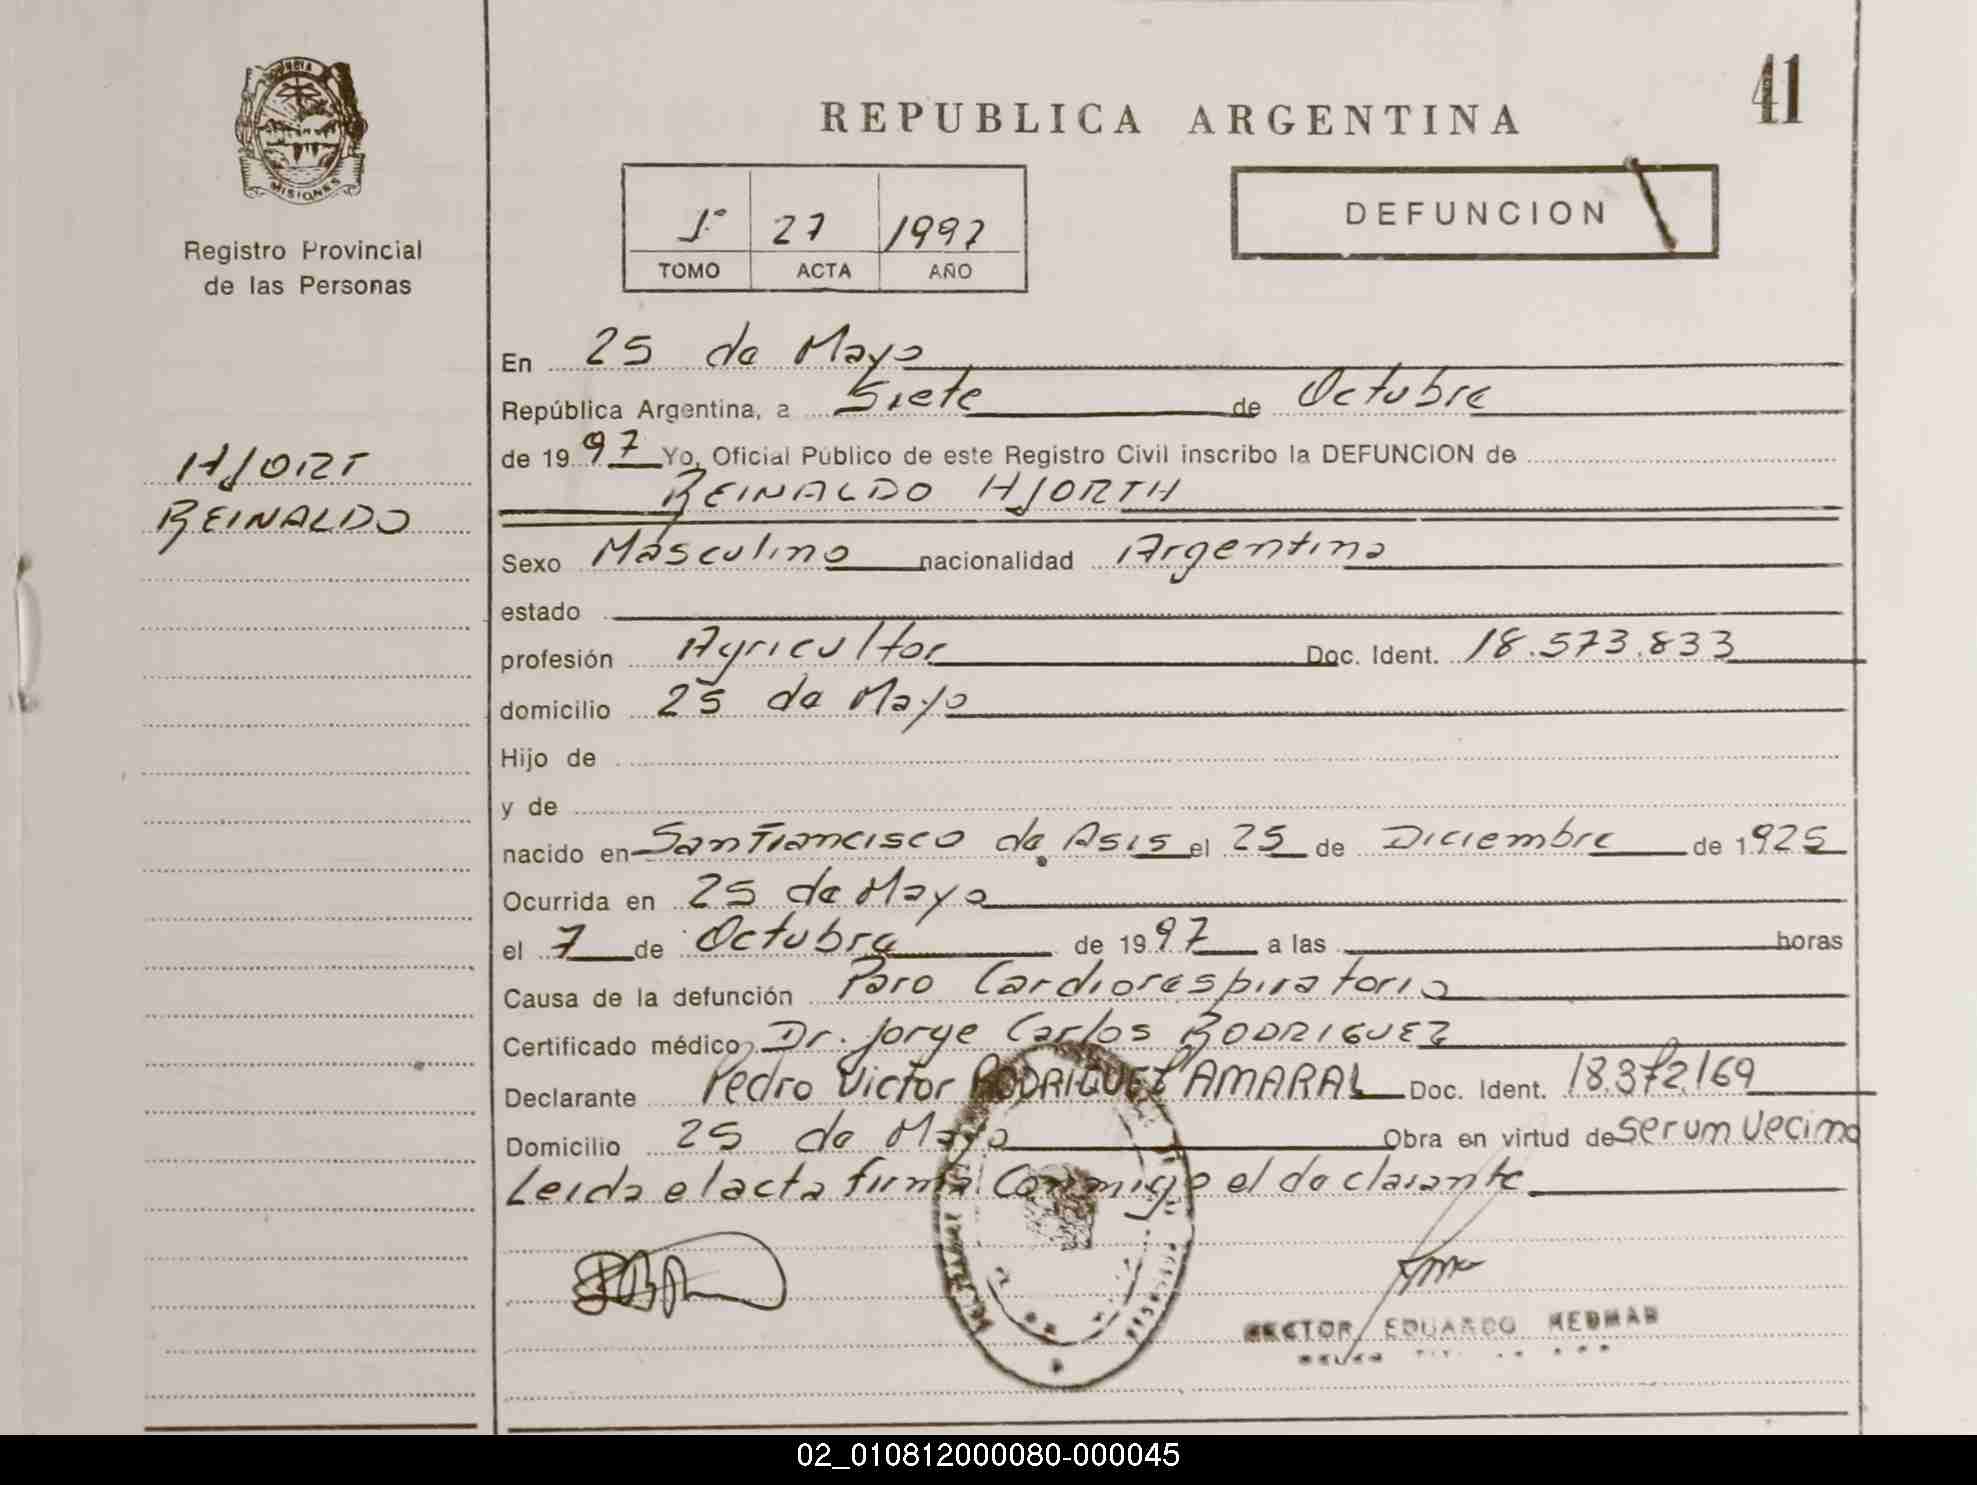 41
REPUBLICA ARGENTINA
MISIONES
Registro Provincial
de las Personas
1º 27 1997
TOMO ACTA AÑO
DEFUNCION
HJORT
REINALDO
En 25 de Mayo
República Argentina, a Siete de Octubre
de 1997 Yo, Oficial Público de este Registro Civil inscribo la DEFUNCION de
REINALDO HJORTH
Sexo Masculino nacionalidad Argentina
estado
profesión Agricultor Doc. Ident. 18.573.833
domicilio 25 de Mayo
Hijo de
y de
nacido en San Francisco de Asis el 25 de Diciembre de 1925
Ocurrida en 25 de Mayo
el 7 de Octubre de 1997 a las horas
Causa de la defunción Paro Cardiorespiratorio
Certificado médico Dr. Jorge Carlos RODRIGUEZ
Declarante Pedro Victor RODRIGUEZ AMARAL Doc. Ident. 18.372.169
Domicilio 25 de Mayo Obra en virtud de ser um Vecimo
Leida el acta firma Conmigo el declarante
HECTOR EDUARDO
02_010812000080-000045